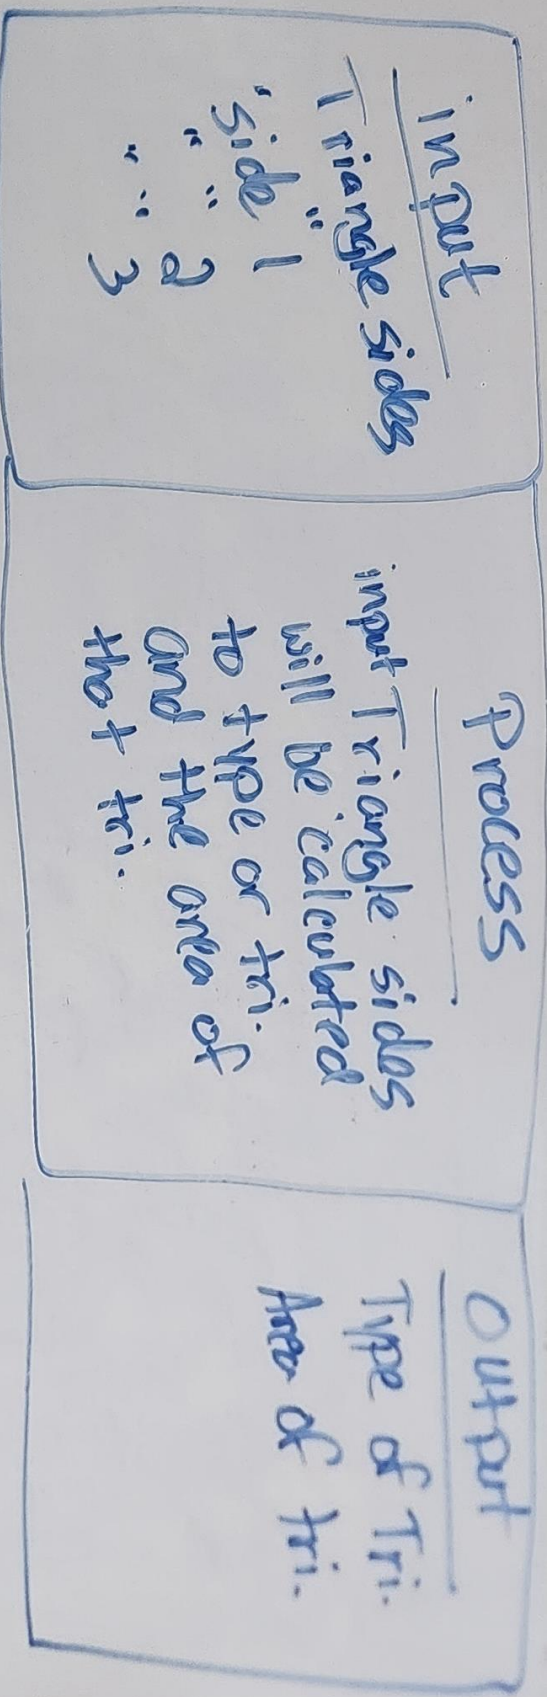 input
Triangle sides
"
'side 1
" " 2
" " 3
Process
input Triangle sides
will be calculated
to type or tri.
and the area of
that tri.
Output
Type of Tri.
Area of tri.